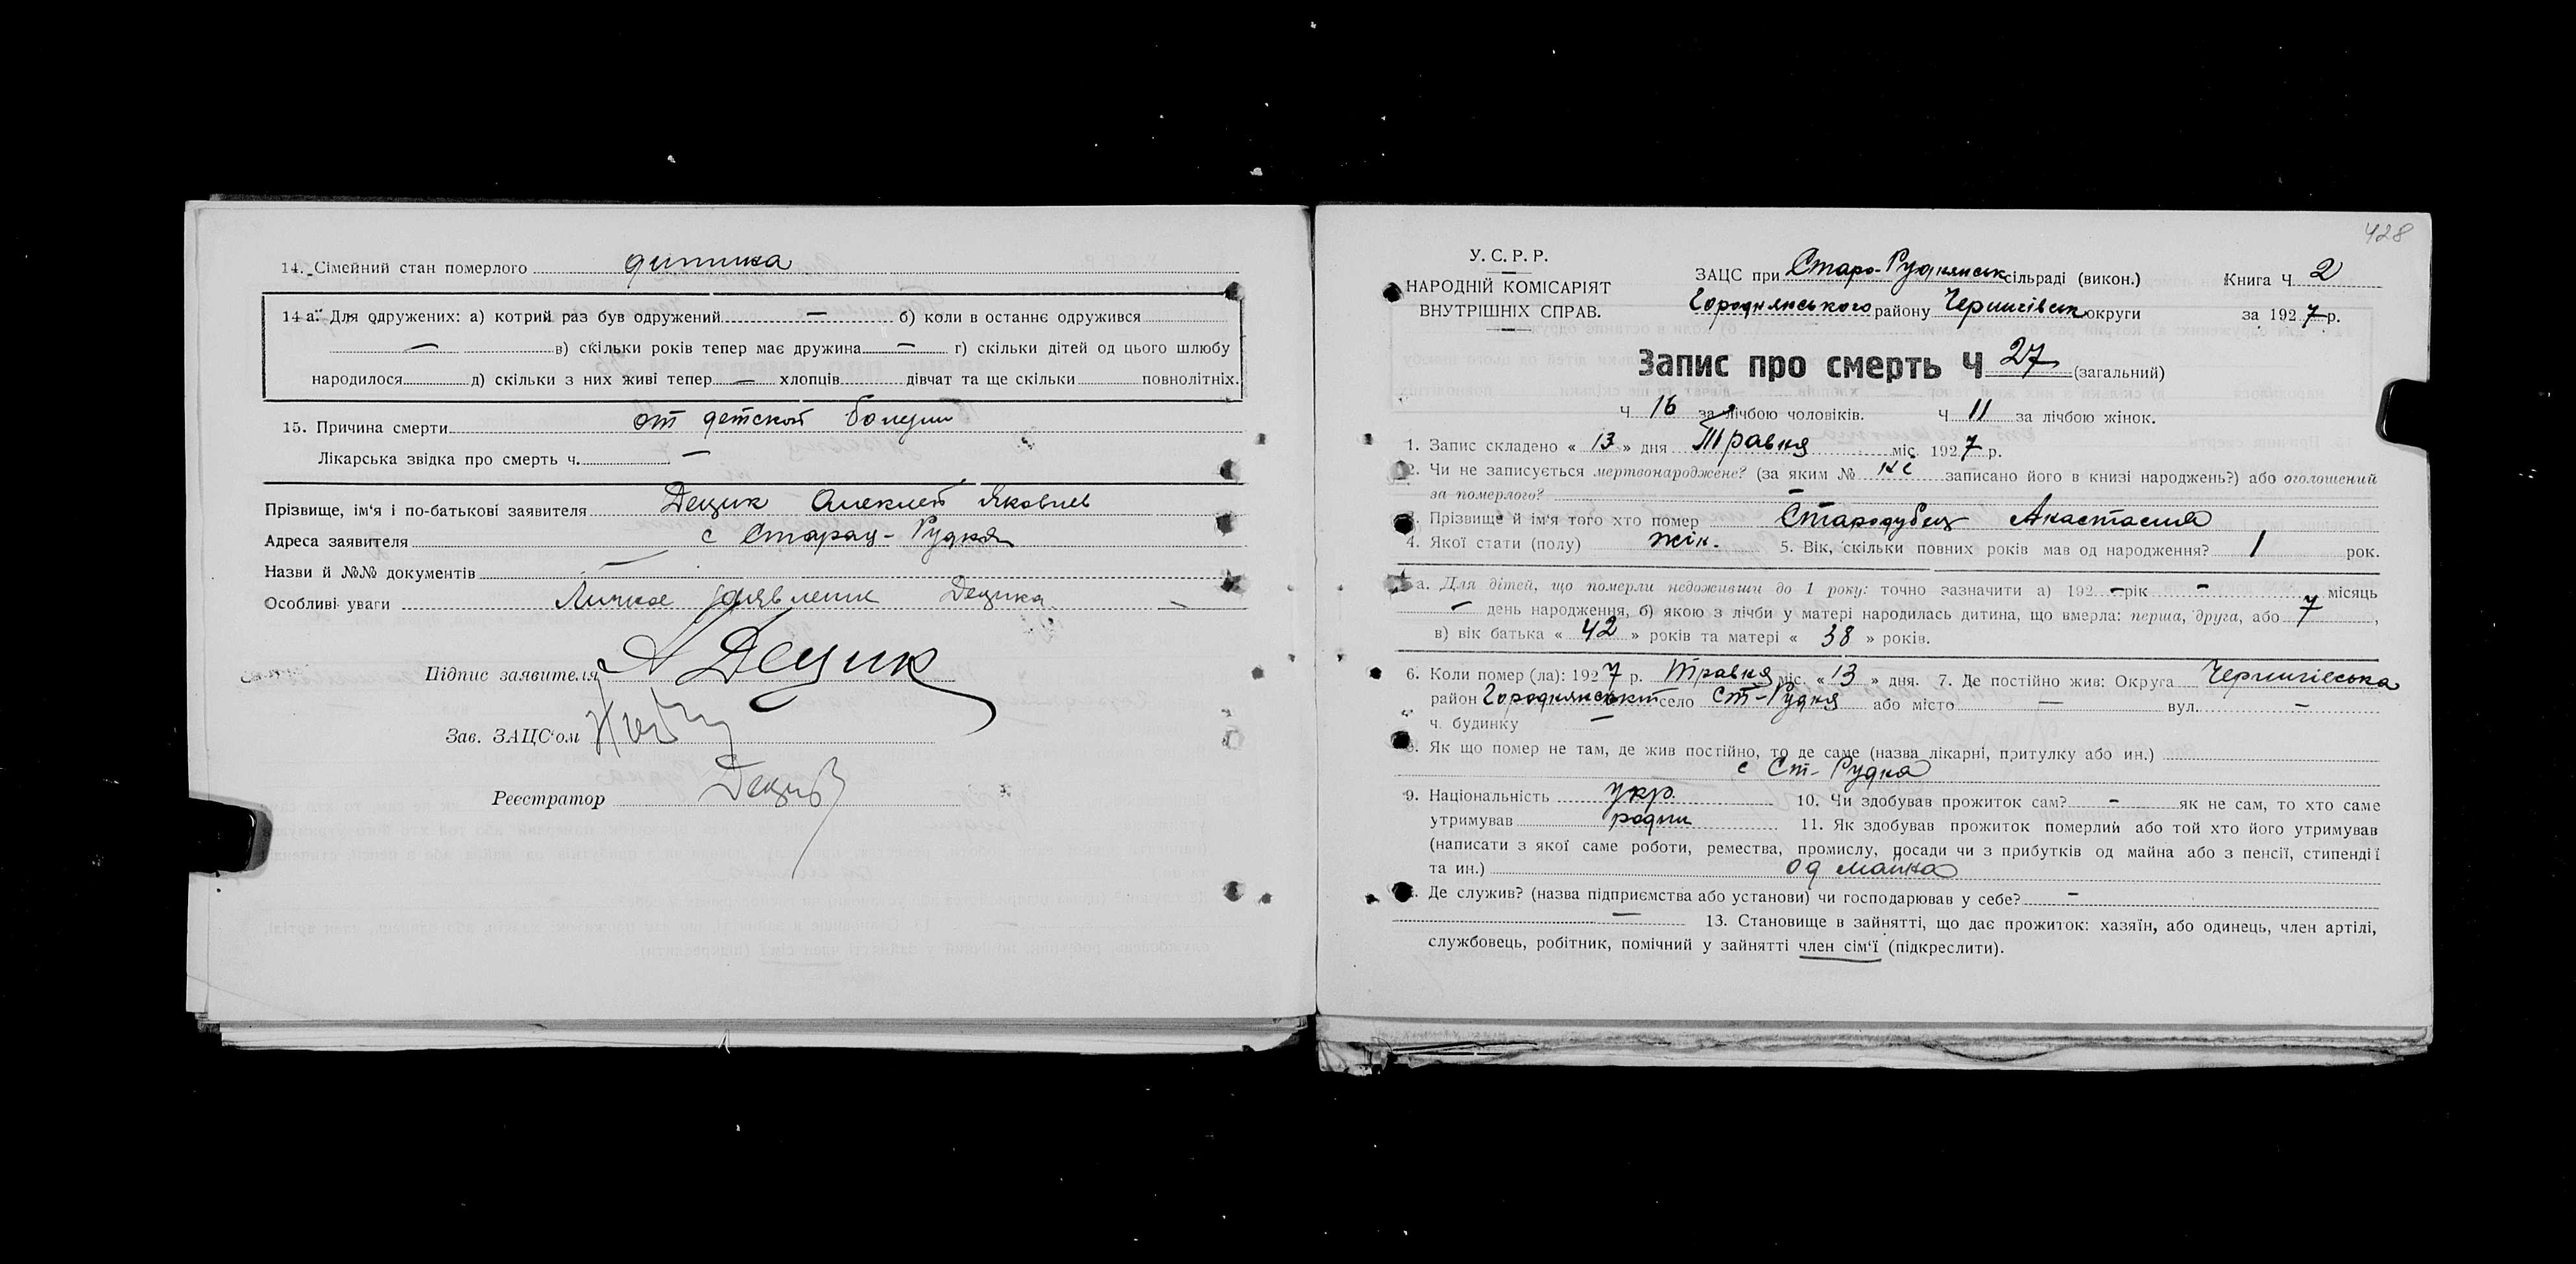 14. Сімейний стан померлого дитина
14 а. Для одружених: а) котрий раз був одружений — б) коли в останнє одружився
— в) скільки років тепер має дружина — г) скільки дітей од цього шлюбу
народилося д) скільки з них живі тепер — хлопців дівчат та ще скільки повнолітніх.
15. Причина смерти от детской болезни
Лікарська звідка про смерть ч. —
Прізвище, ім'я і по-батькові заявителя Децик Алексей Яковлев
Адреса заявителя с Старая-Рудня
Назви й №№ документів —
Особливі уваги Личное заявление Децика —
Підпис заявителя А Децик
Зав. ЗАЦС'ом
Реестратор
428
У. С. Р. Р.
НАРОДНІЙ КОМІСАРІЯТ
ВНУТРІШНІХ СПРАВ.
ЗАЦС при Старо-Руднянськ сільраді (викон.) Книга Ч 2
Городнянського району Чернигівськ округи за 1927 р.
Запис про смерть Ч 27 (загальний)
Ч 16 за лічбою чоловіків. Ч 11 за лічбою жінок.
1. Запис складено « 13 » дня Травня міс. 1927 р.
2. Чи не записується мертвонароджене? (за яким № ні записано його в книзі народжень?) або оголошений
за померлого? —
3. Прізвище й ім'я того хто помер Стародубец Анастасия
4. Якої стати (полу) жін. 5. Вік, скільки повних років мав од народження? 1 рок.
5а. Для дітей, що померли недоживши до 1 року: точно зазначити а) 192 — рік — місяць
— день народження, б) якою з лічби у матері народилась дитина, що вмерла: перша, друга, або 7,
в) вік батька « 42 » років та матері « 38 » років.
6. Коли помер (ла): 1927 р. Травня міс. « 13 » дня. 7. Де постійно жив: Округа Чернигівська
район Городнянський село Ст-Рудня або місто — вул. —
ч. будинку —
8. Як що помер не там, де жив постійно, то де саме (назва лікарні, притулку або ин.)
с Ст-Рудня
9. Національність укр. 10. Чи здобував прожиток сам? — як не сам, то хто саме
утримував родит 11. Як здобував прожиток померлий або той хто його утримував
(написати з якої саме роботи, ремества, промислу, посади чи з прибутків од майна або з пенсії, стипендії
та ин.) од майна
12. Де служив? (назва підприємства або установи) чи господарював у себе? —
— 13. Становище в зайнятті, що дає прожиток: хазяїн, або одинець, член артілі,
службовець, робітник, помічний у зайнятті член сім'ї (підкреслити).